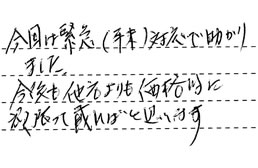 今回は緊急(年末)対応で助かり
ました。
今後も他社よりも価格的に
頑張って戴ければと思います